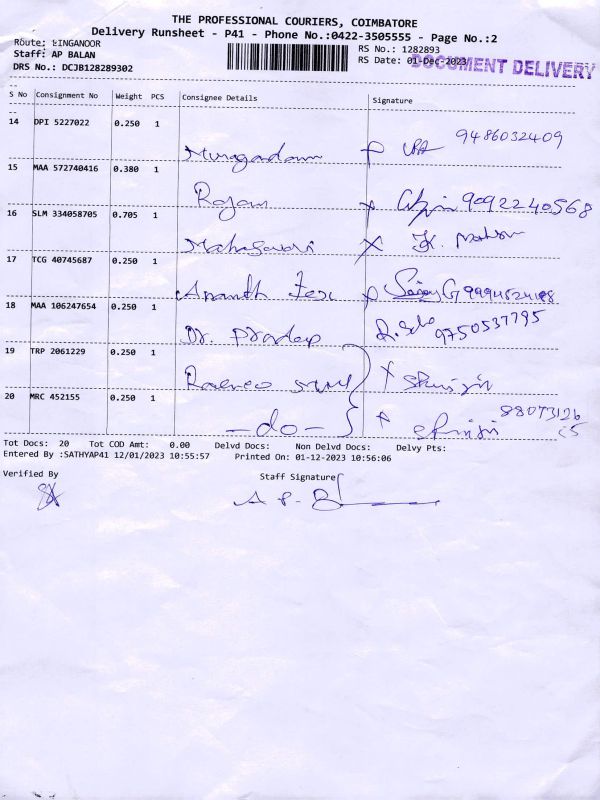 THE PROFESSIONAL COURIERS, COIMBATORE
Delivery Runsheet - P41 - Phone No.:0422-3505555 - Page No.:2
Route: LINGANOOR
Staff: AP BALAN
DRS No.: DCJB128289302
RS No.: 1282893
RS Date: 01-Dec-2023
DOCUMENT DELIVERY
S No Consignment No Weight PCS Consignee Details Signature
14 DPI 5227022 0.250 1
Murugadam 9486032409
15 MAA 572740416 0.380 1
Rajan 9092240568
16 SLM 334058705 0.705 1
Maheswari
17 TCG 40745687 0.250 1
Ananth Tex Sanjay G
18 MAA 106247654 0.250 1
Dr. Pradep 9750537795
19 TRP 2061229 0.250 1
20 MRC 452155 0.250 1
-do- 88073126
Tot Docs: 20 Tot COD Amt: 0.00 Delvd Docs: Non Delvd Docs: Delvy Pts:
Entered By :SATHYAP41 12/01/2023 10:55:57 Printed On: 01-12-2023 10:56:06
Verified By Staff Signature